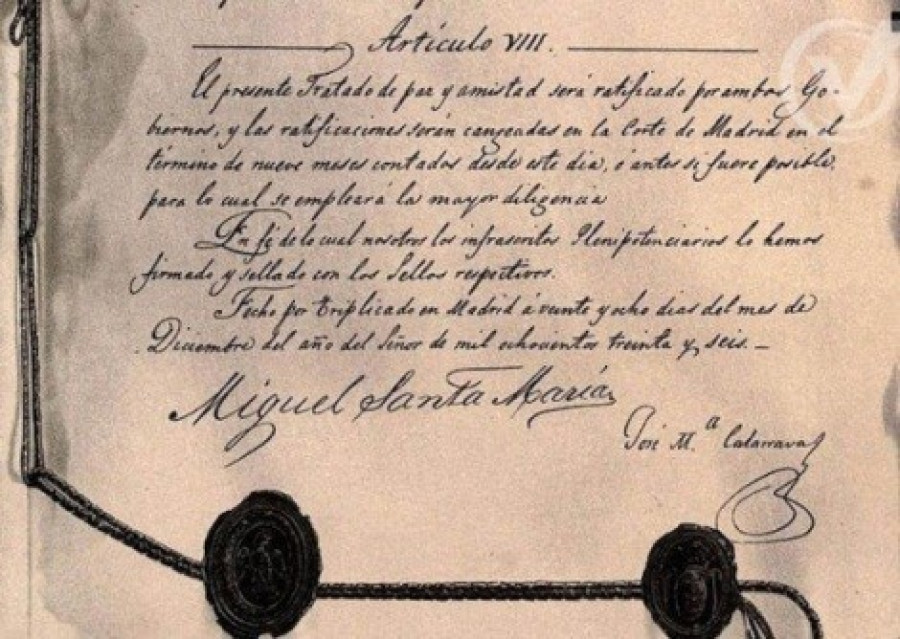 Artículo VIII.
El presente Tratado de paz y amistad será ratificado por ambos Go-
biernos, y las ratificaciones serán cangeadas en la Corte de Madrid en el
término de nueve meses contados desde este dia, ó antes si fuere posible,
para lo cual se empleará la mayor diligencia
En fé de lo cual nosotros los infrascritos Plenipotenciarios lo hemos
firmado y sellado con los Sellos respectivos.
Fecho por triplicado en Madrid á veinte y ocho dias del mes de
Diciembre del año del Señor de mil ochocientos treinta y seis. _
Miguel Santa María
José M.ª Calatrava